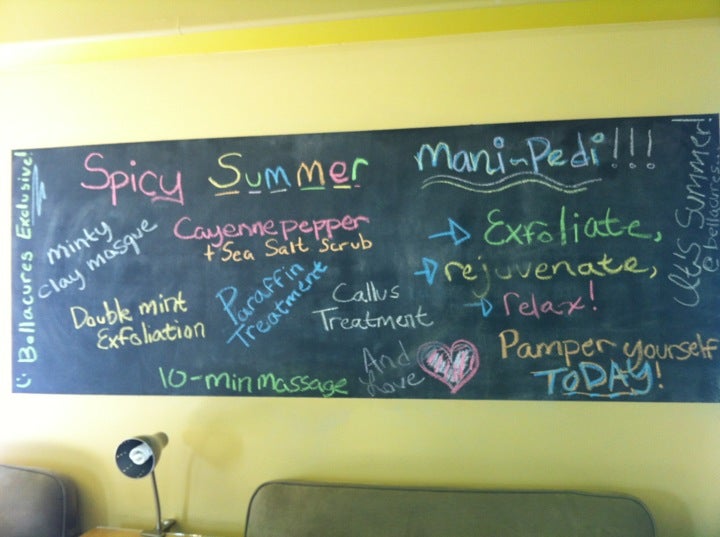 Bellacures Exclusive!
Spicy Summer Mani-Pedi!!!
minty
clay masque
Cayenne pepper
+ Sea Salt Scrub
Double mint
Exfoliation
Paraffin
Treatment
Callus
Treatment
10-min massage
And
Love
Exfoliate,
rejuvenate,
relax!
Pamper yourself
TODAY!
Summer!
@bellacures